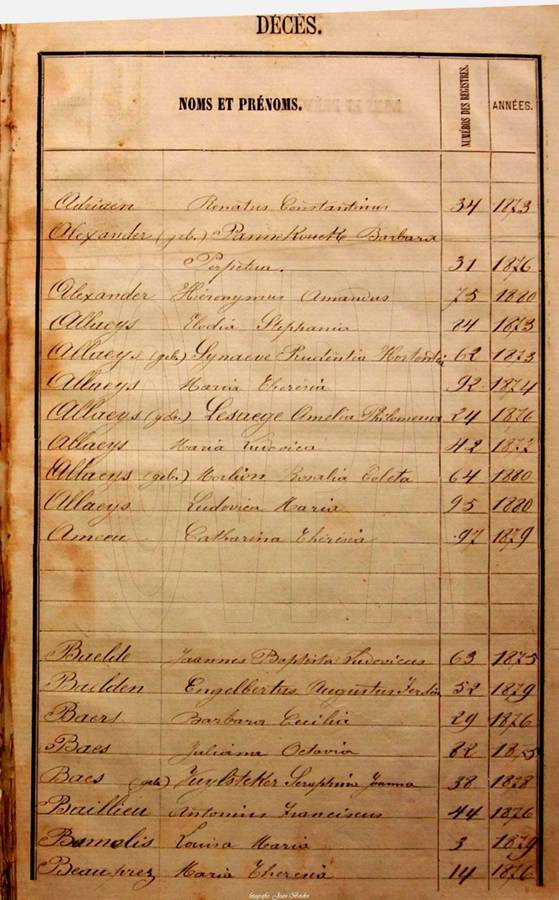 DÉCÈS.
NOMS ET PRÉNOMS. NUMÉROS DES REGISTRES. ANNÉES.
Adriaen Renatus Constantinus 34 1873
Alexander (geb.) Pannekoucke Barbara
Perpetua. 31 1876
Alexander Hieronymus Amandus 75 1880
Allaeys Elodia Stephania 24 1873
Allaeys (geb.) Synaeve Prudentia Hortentia 62 1873
Allaeys Maria Theresia 92 1874
Allaeys (geb.) Lesaege Amelia Philomena 24 1876
Allaeys Maria Ludovica 42 1877
Allaeys (geb.) Morlion Rosalia Coleta 64 1880
Allaeys Ludovica Maria 95 1880
Ameou Catharina Theresia 97 1879
Baelde Joannes Baptista Ludovicus 63 1875
Baelden Engelbertus Augustus 52 1879
Baers Barbara Cecilia 29 1876
Baes Juliana Octavia 82 1875
Baes (geb.) Seraphina Joanna 38 1878
Baillieu Antonius Franciscus 44 1876
Bamelis Louisa Maria 3 1879
Beauprez Maria Theresia 14 1876